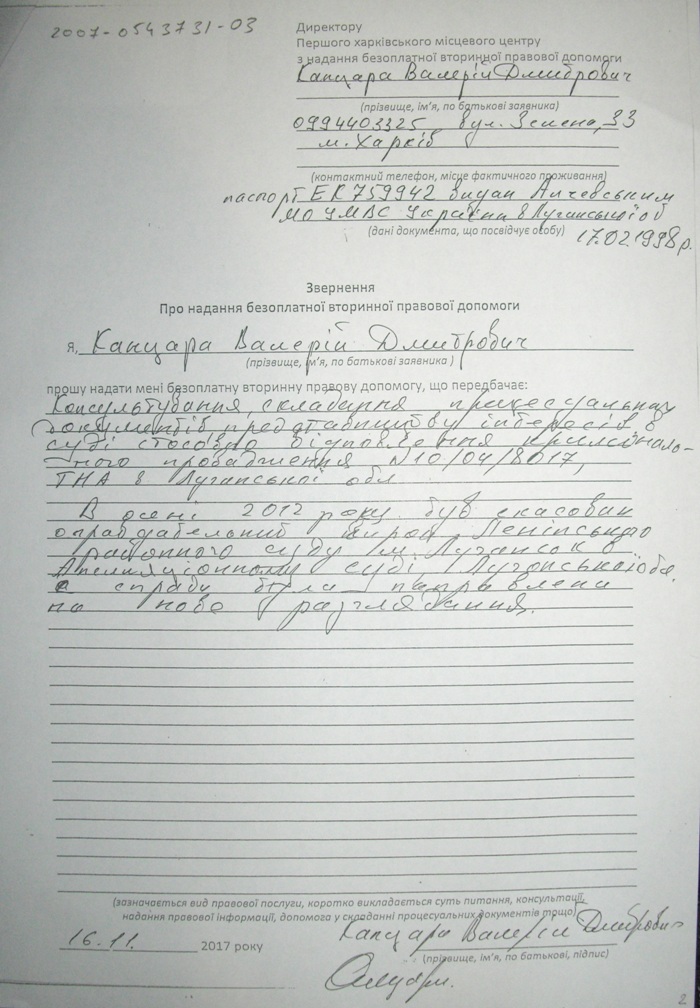 2007-0543731-03
Директору
Першого харківського місцевого центру
з надання безоплатної вторинної правової допомоги
Канцара Валерій Дмитрович
(прізвище, ім'я, по батькові заявника)
0994403325 вул. Зелена, 33
м. Харків
(контактний телефон, місце фактичного проживання)
паспорт ЕК 759942 видан Алчевським
МО УМВС України в Луганської об
(дані документа, що посвідчує особу) 17.02.1998р.
Звернення
Про надання безоплатної вторинної правової допомоги
я, Канцара Валерій Дмитрович
(прізвище, ім'я, по батькові заявника )
прошу надати мені безоплатну вторинну правову допомогу, що передбачає:
Консультування, складання процесуальних
документів, представництву інтересів в
суді стосовно відновлення криміналь-
ного провадження N10/04/8017,
в Луганської обл
В осені 2012 року був скасован
оправдательний вирок Ленінського
районного суду м. Луганськ в
Апеляціонному суді Луганської об.
а справу була направлена
на нове разглядання.
(зазначається вид правової послуги, коротко викладається суть питання, консультації,
надання правової інформації, допомога у складанні процесуальних документів тощо)
Канцара Валерій Дмитрович
16.11. 2017 року
(прізвище, ім'я, по батькові, підпис)
2